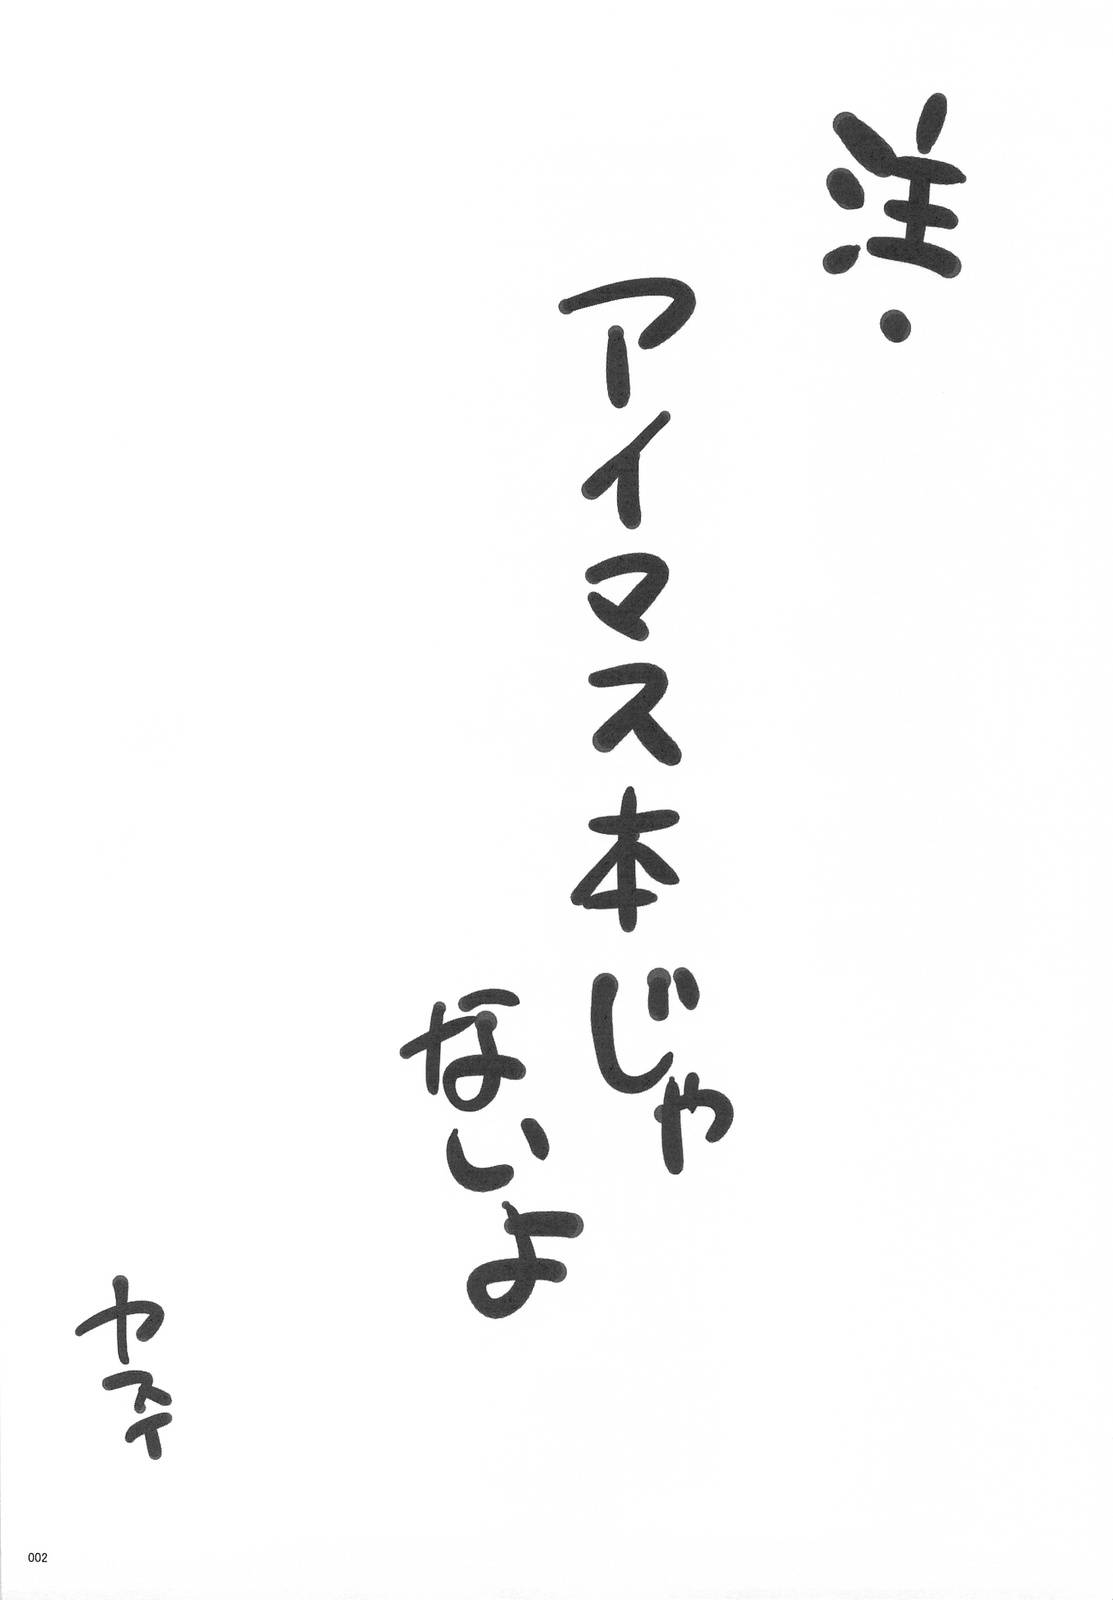 注・
アイマス本じゃ
ないよ
ヤスイ
002